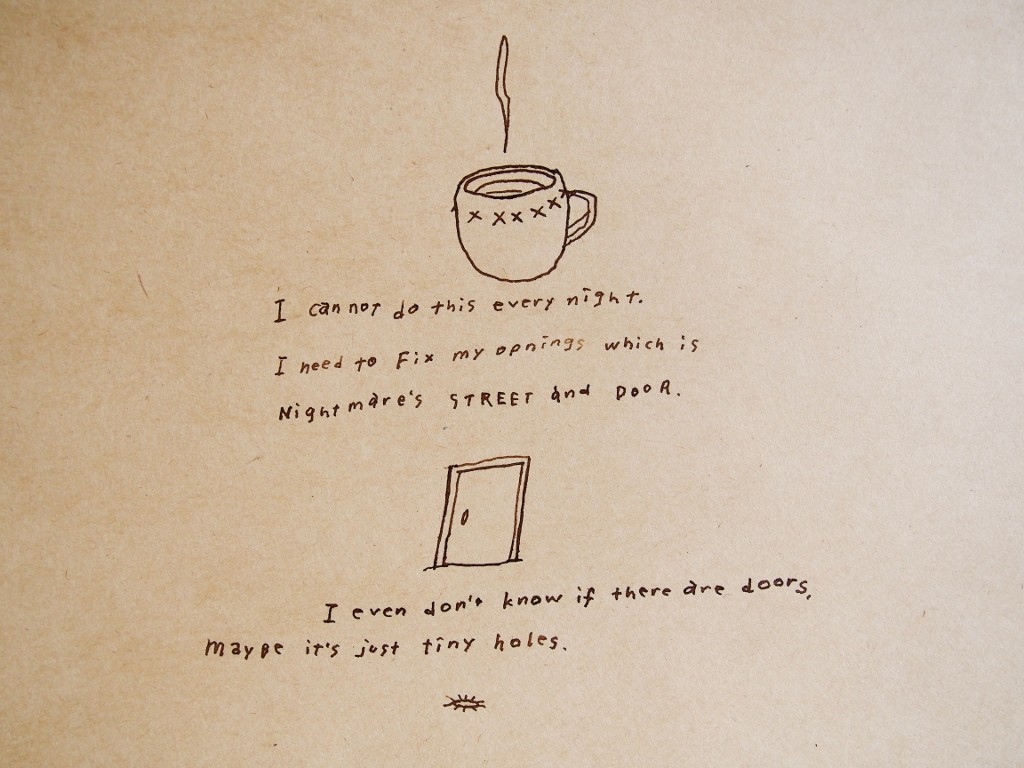 I cannot do this every night.
I need to Fix my opnings which is
Nightmare's STREET and DOOR.
I even don't know if there are doors,
Maybe it's just tiny holes.